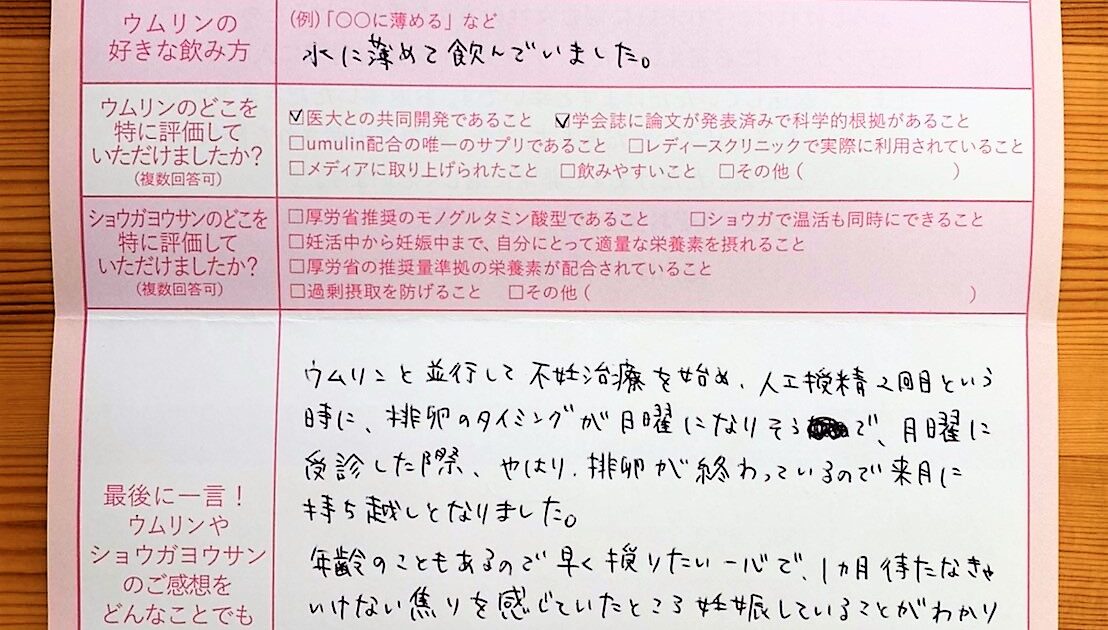 ウムリンの
好きな飲み方
(例)「〇〇に薄める」など
水に薄めて飲んでいました。
ウムリンのどこを
特に評価して
いただけましたか?
(複数回答可)
☑医大との共同開発であること ☑学会誌に論文が発表済みで科学的根拠があること
□umulin配合の唯一のサプリであること □レディースクリニックで実際に利用されていること
□メディアに取り上げられたこと □飲みやすいこと □その他( )
ショウガヨウサンのどこを
特に評価して
いただけましたか?
(複数回答可)
□厚労省推奨のモノグルタミン酸型であること □ショウガで温活も同時にできること
□妊活中から妊娠中まで、自分にとって適量な栄養素を摂れること
□厚労省の推奨量準拠の栄養素が配合されていること
□過剰摂取を防げること □その他( )
最後に一言!
ウムリンや
ショウガヨウサン
のご感想を
どんなことでも
ウムリンと並行して不妊治療を始め、人工授精2回目という
時に、排卵のタイミングが日曜になりそうで、月曜に
受診した際、やはり、排卵が終わっているので来月に
持ち越しとなりました。
年齢のこともあるので早く授りたい一心で、1ヵ月待たなきゃ
いけない焦りを感じていたところ妊娠していることがわかり